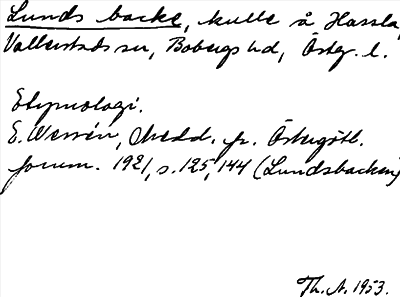 Lunds backe, kulle å Hassla,
Vallerstads sn, Bobergs hd, Östg. l.
Etymologi.
E. Wessén, Medd. fr. Östergötl.
fornm. 1921, s. 125, 144 (Lundsbacken)
Th. A. 1953.